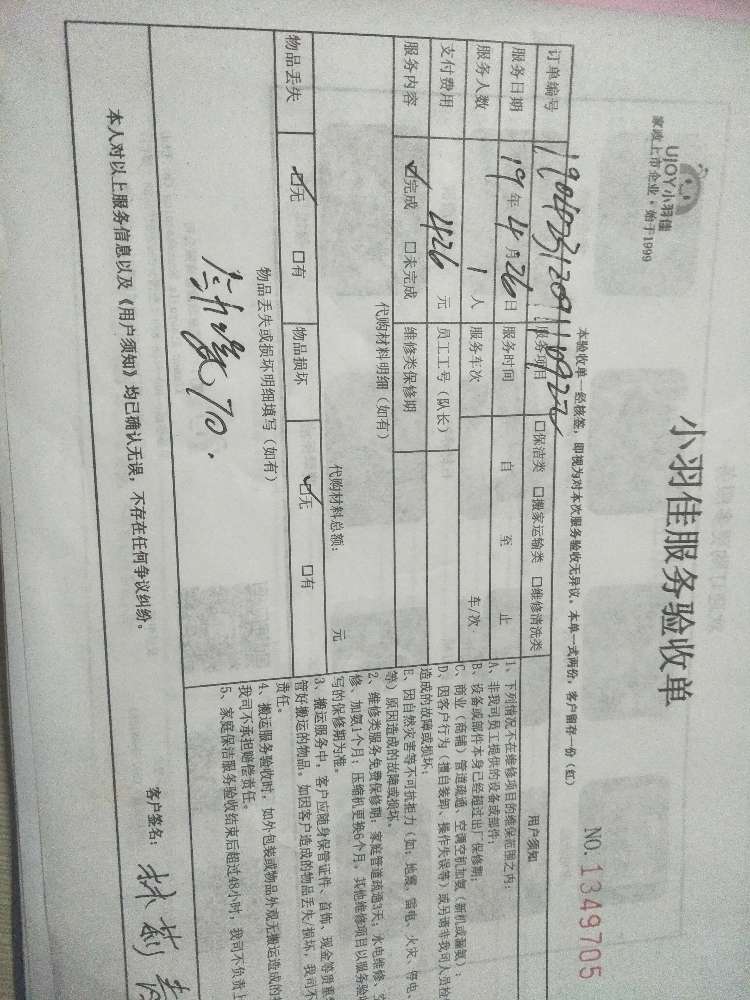 UJOY小羽佳
家政上市企业·始于1999
小羽佳服务验收单
NO. 1349705
本验收单一经核签，即视为对本次服务验收无异议。本单一式两份，客户留存一份（红）
订单编号
服务项目 □保洁类 □搬家运输类 □维修清洗类
服务日期 19年4月26日 服务时间 自 至 止
服务人数 1人 服务车次 车/次
支付费用 426元 员工工号（队长）
服务内容 ☑完成 □未完成 维修类保修期
代购材料明细（如有）
代购材料总额： 元
物品丢失 ☑无 □有 物品损坏 ☑无 □有
物品丢失或损坏明细填写（如有）
本人对以上服务信息以及《用户须知》均已确认无误，不存在任何争议纠纷。
客户签名：
用户须知
1、下列情况不在维修项目的维保范围之内：
A、非我司员工提供的设备或部件；
B、设备或部件本身已经超过出厂保修期；
C、商业（商铺）管道疏通、空调空机加氨（新机或漏氨）；
D、因客户行为（擅自装卸、操作失误等）或另请非我司人员检
造成的故障或损坏；
E、因自然灾害等不可抗拒力（如：地震、雷电、火灾、停电、
等）原因造成的故障或损坏。
2、维修类服务免费保修期：家庭管道疏通3天；水电维修、空
修、加氨1个月；压缩机更换6个月，其他维修项目以服务验收
写的保修期为准。
3、搬运服务中，客户应随身保管证件、首饰、现金等贵重
管好搬运的物品。如因客户造成的物品丢失/损坏，我司不
责任。
4、搬运服务验收时，如外包装或物品外观无搬运造成的
我司不承担赔偿责任。
5、家庭保洁服务验收结束后超过48小时，我司不负责上